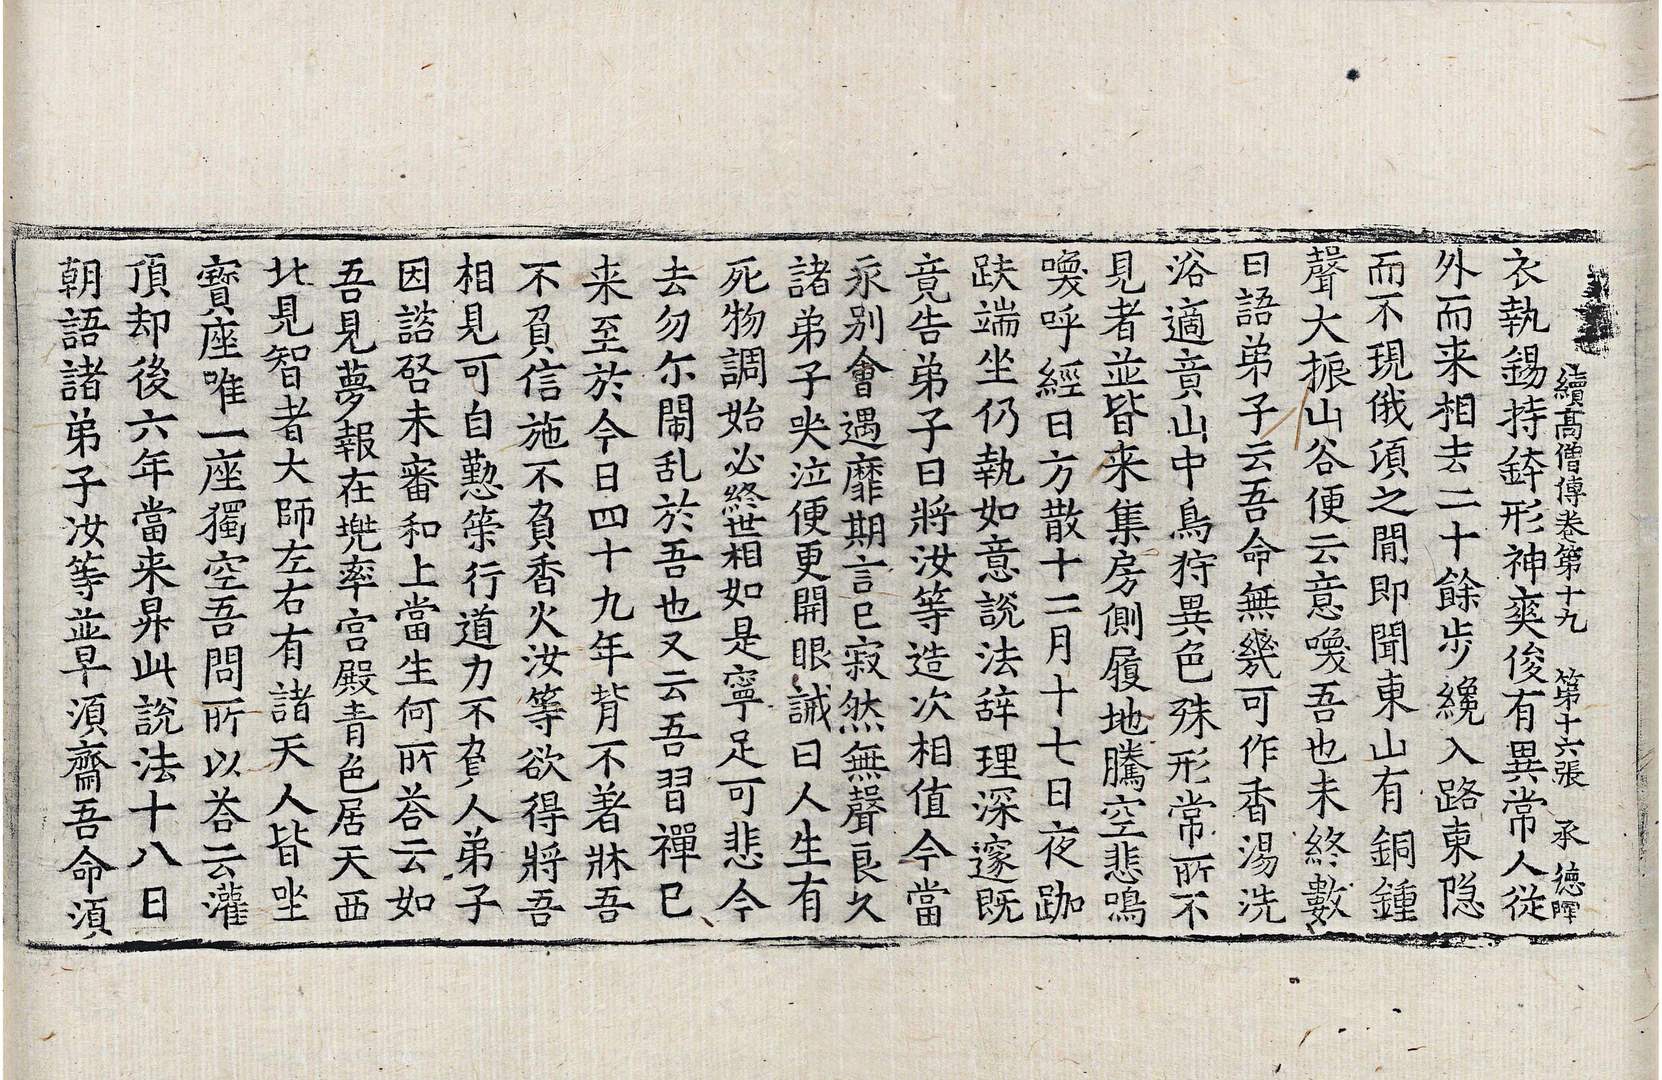 續髙僧傳卷第十九 第十六張 承 德暉
衣執錫持鉢形神爽俊有異常人從
外而来相去二十餘步纔入路東隐
而不現俄須之閒即聞東山有銅鍾
聲大振山谷便云意喚吾也未終數
日語弟子云吾命無幾可作香湯洗
浴適竟山中鳥狩異色殊形常所不
見者並皆来集房側履地騰空悲鳴
喚呼經日方散十二月十七日夜跏
趺端坐仍執如意說法辞理深邃既
竟告弟子曰將汝等造次相值今當
永別會遇靡期言已寂然無聲良久
諸弟子哭泣便更開眼誡曰人生有
死物調始必終世相如是寧足可悲今
去勿尓閙乱於吾也又云吾習禪已
来至於今日四十九年背不著牀吾
不負信施不負香火汝等欲得將吾
相見可自懃策行道力不負人弟子
因諮啓未審和上當生何所荅云如
吾見夢報在兠率宫殿青色居天西
北見智者大師左右有諸天人皆坐
寶座唯一座獨空吾問所以荅云灌
頂却後六年當来昇此說法十八日
朝語諸弟子汝等並早須齋吾命須